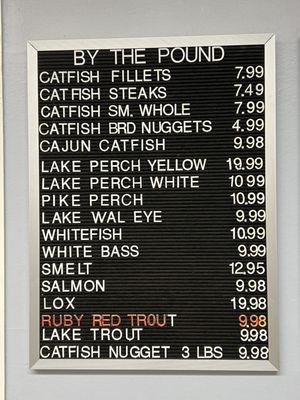 BY THE POUND
CATFISH FILLETS 7.99
CATFISH STEAKS 7.49
CATFISH SM. WHOLE 7.99
CATFISH BRD NUGGETS 4.99
CAJUN CATFISH 9.98
LAKE PERCH YELLOW 19.99
LAKE PERCH WHITE 10 99
PIKE PERCH 10.99
LAKE WAL EYE 9.99
WHITEFISH 10.99
WHITE BASS 9.99
SMELT 12.95
SALMON 9.98
LOX 19.98
RUBY RED TROUT 9.98
LAKE TROUT 9.98
CATFISH NUGGET 3 LBS 9.98